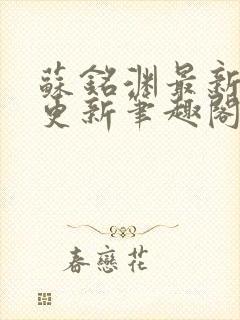 蘇銘淵最新
更新筆趣閣
春戀花